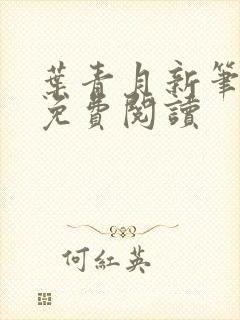 葉青月新筆
免費閱讀
何紅英